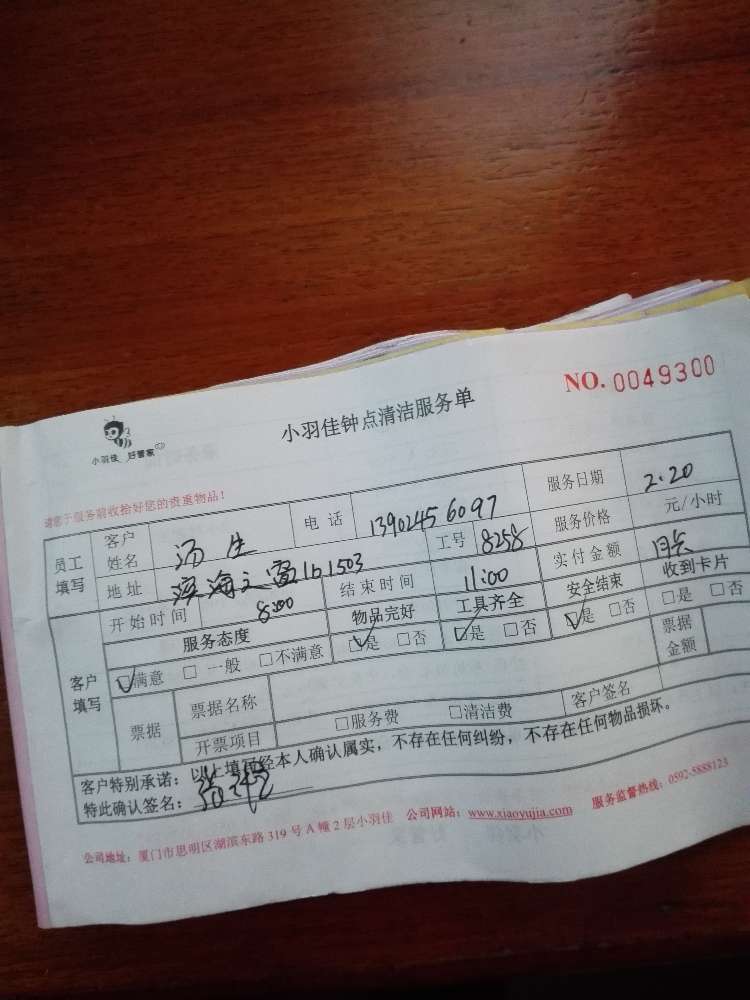 NO. 0049300
小羽佳 好管家
小羽佳钟点清洁服务单
请您于服务前收拾好您的贵重物品！
员工填写 客户姓名 汤生 电话 13902456097 服务日期 2.20
地址 滨海之窗1b1503 工号 8258 服务价格 元/小时
开始时间 8:00 结束时间 11:00 实付金额 月卡
客户填写 服务态度 物品完好 工具齐全 安全结束 收到卡片
☑满意 □一般 □不满意 ☑是 □否 ☑是 □否 ☑是 □否 □是 □否
票据 票据名称 票据金额
开票项目 □服务费 □清洁费 客户签名
客户特别承诺：以上填写经本人确认属实，不存在任何纠纷，不存在任何物品损坏。
特此确认签名：
公司地址：厦门市思明区湖滨东路319号A幢2层小羽佳 公司网站：www.xiaoyujia.com 服务监督热线：0592-5888123